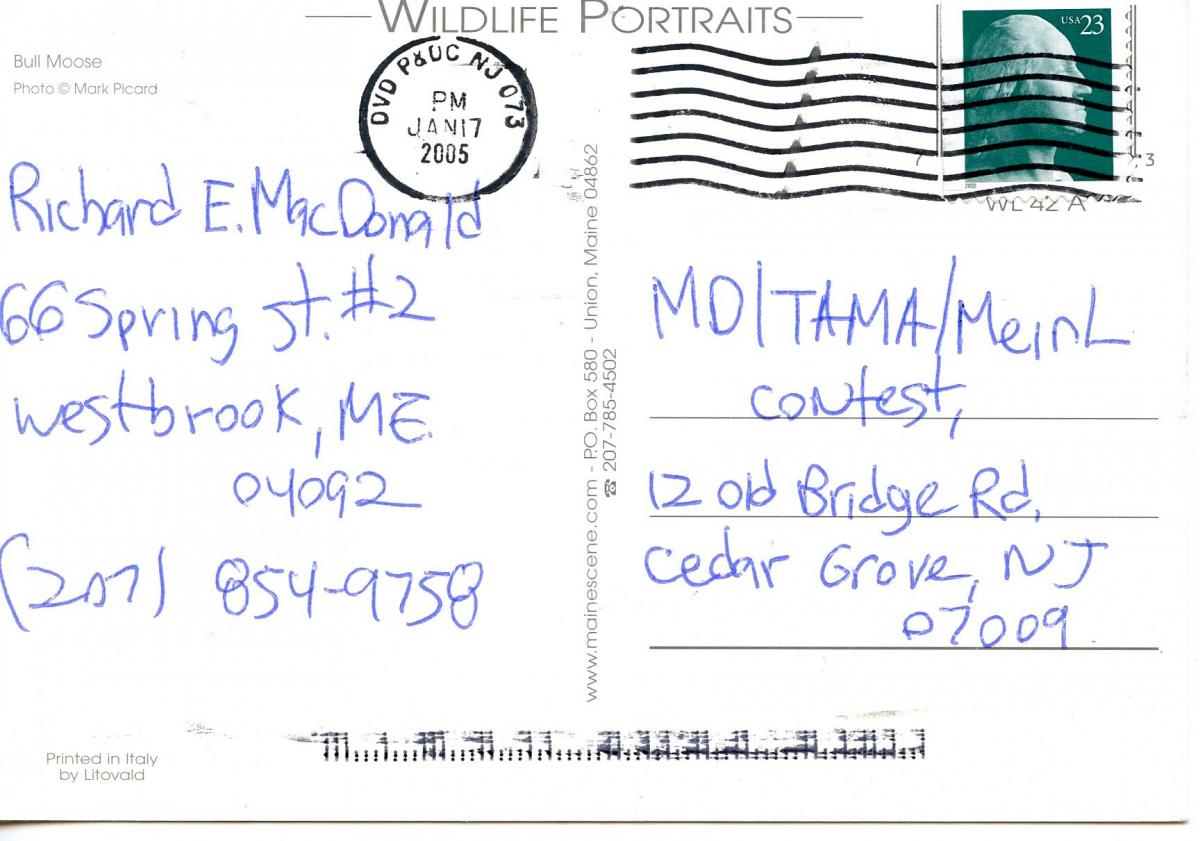 WILDLIFE PORTRAITS
Bull Moose
Photo © Mark Picard
DVD P&DC NJ 073
PM
JAN 17
2005
USA 23
2002
WL 42 A
Richard E. MacDonald
66 Spring St. #2
Westbrook, ME
04092
(207) 854-9758
www.mainescene.com - P.O. Box 580 - Union, Maine 04862
☎ 207-785-4502
MD/TAMA/Meinl
Contest,
12 Old Bridge Rd,
Cedar Grove, NJ
07009
Printed in Italy
by Litovald